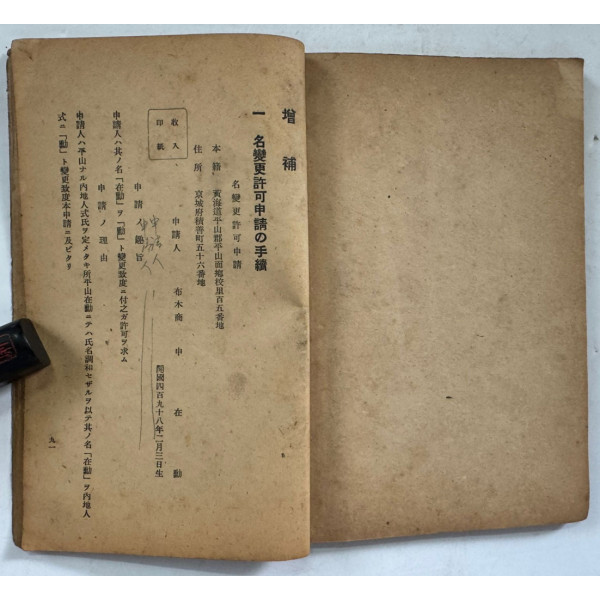 增補
一 名變更許可申請の手續
名變更許可申請
本籍 黃海道平山郡平山面鄕校里百五番地
住所 京城府積善町五十六番地
收入
印紙
申請人 布木商 申在勳
開國四百九十八年二月三日生
申請ノ趣旨
申請人ハ其ノ名「在勳」ヲ「勳」ト變更致度ニ付之ガ許可ヲ求ム
申請ノ理由
申請人ハ平山ナル內地人式氏ヲ定メタキ所平山在勳ニテハ氏名調和セザルヲ以テ其ノ名「在勳」ヲ內地人
式ニ「勳」ト變更致度本申請ニ及ビタリ
九一